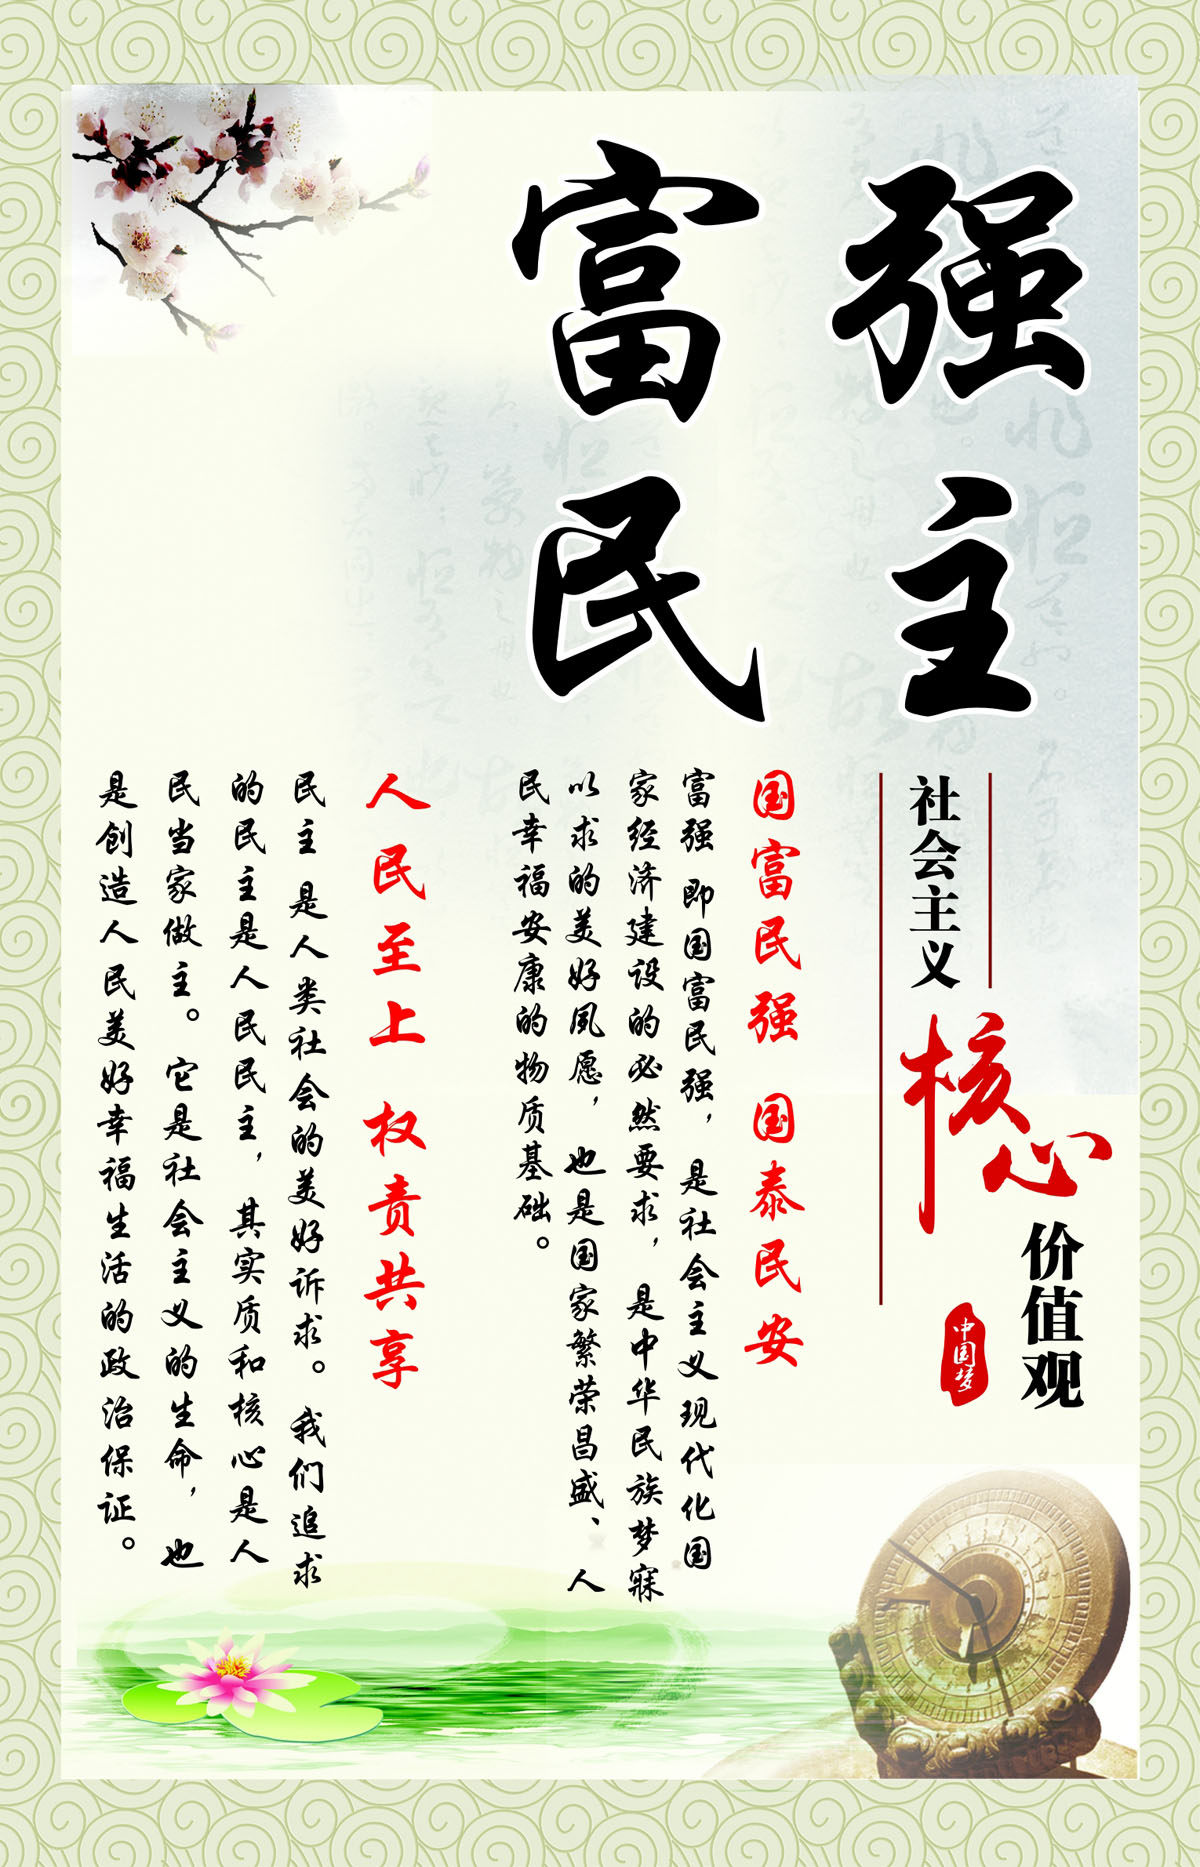 富强
民主
社会主义
核心
价值观
中国梦
国富民强 国泰民安
富强 即国富民强，是社会主义现代化国
家经济建设的必然要求，是中华民族梦寐
以求的美好夙愿，也是国家繁荣昌盛、人
民幸福安康的物质基础。
人民至上 权责共享
民主 是人类社会的美好诉求。我们追求
的民主是人民民主，其实质和核心是人
民当家做主。它是社会主义的生命，也
是创造人民美好幸福生活的政治保证。